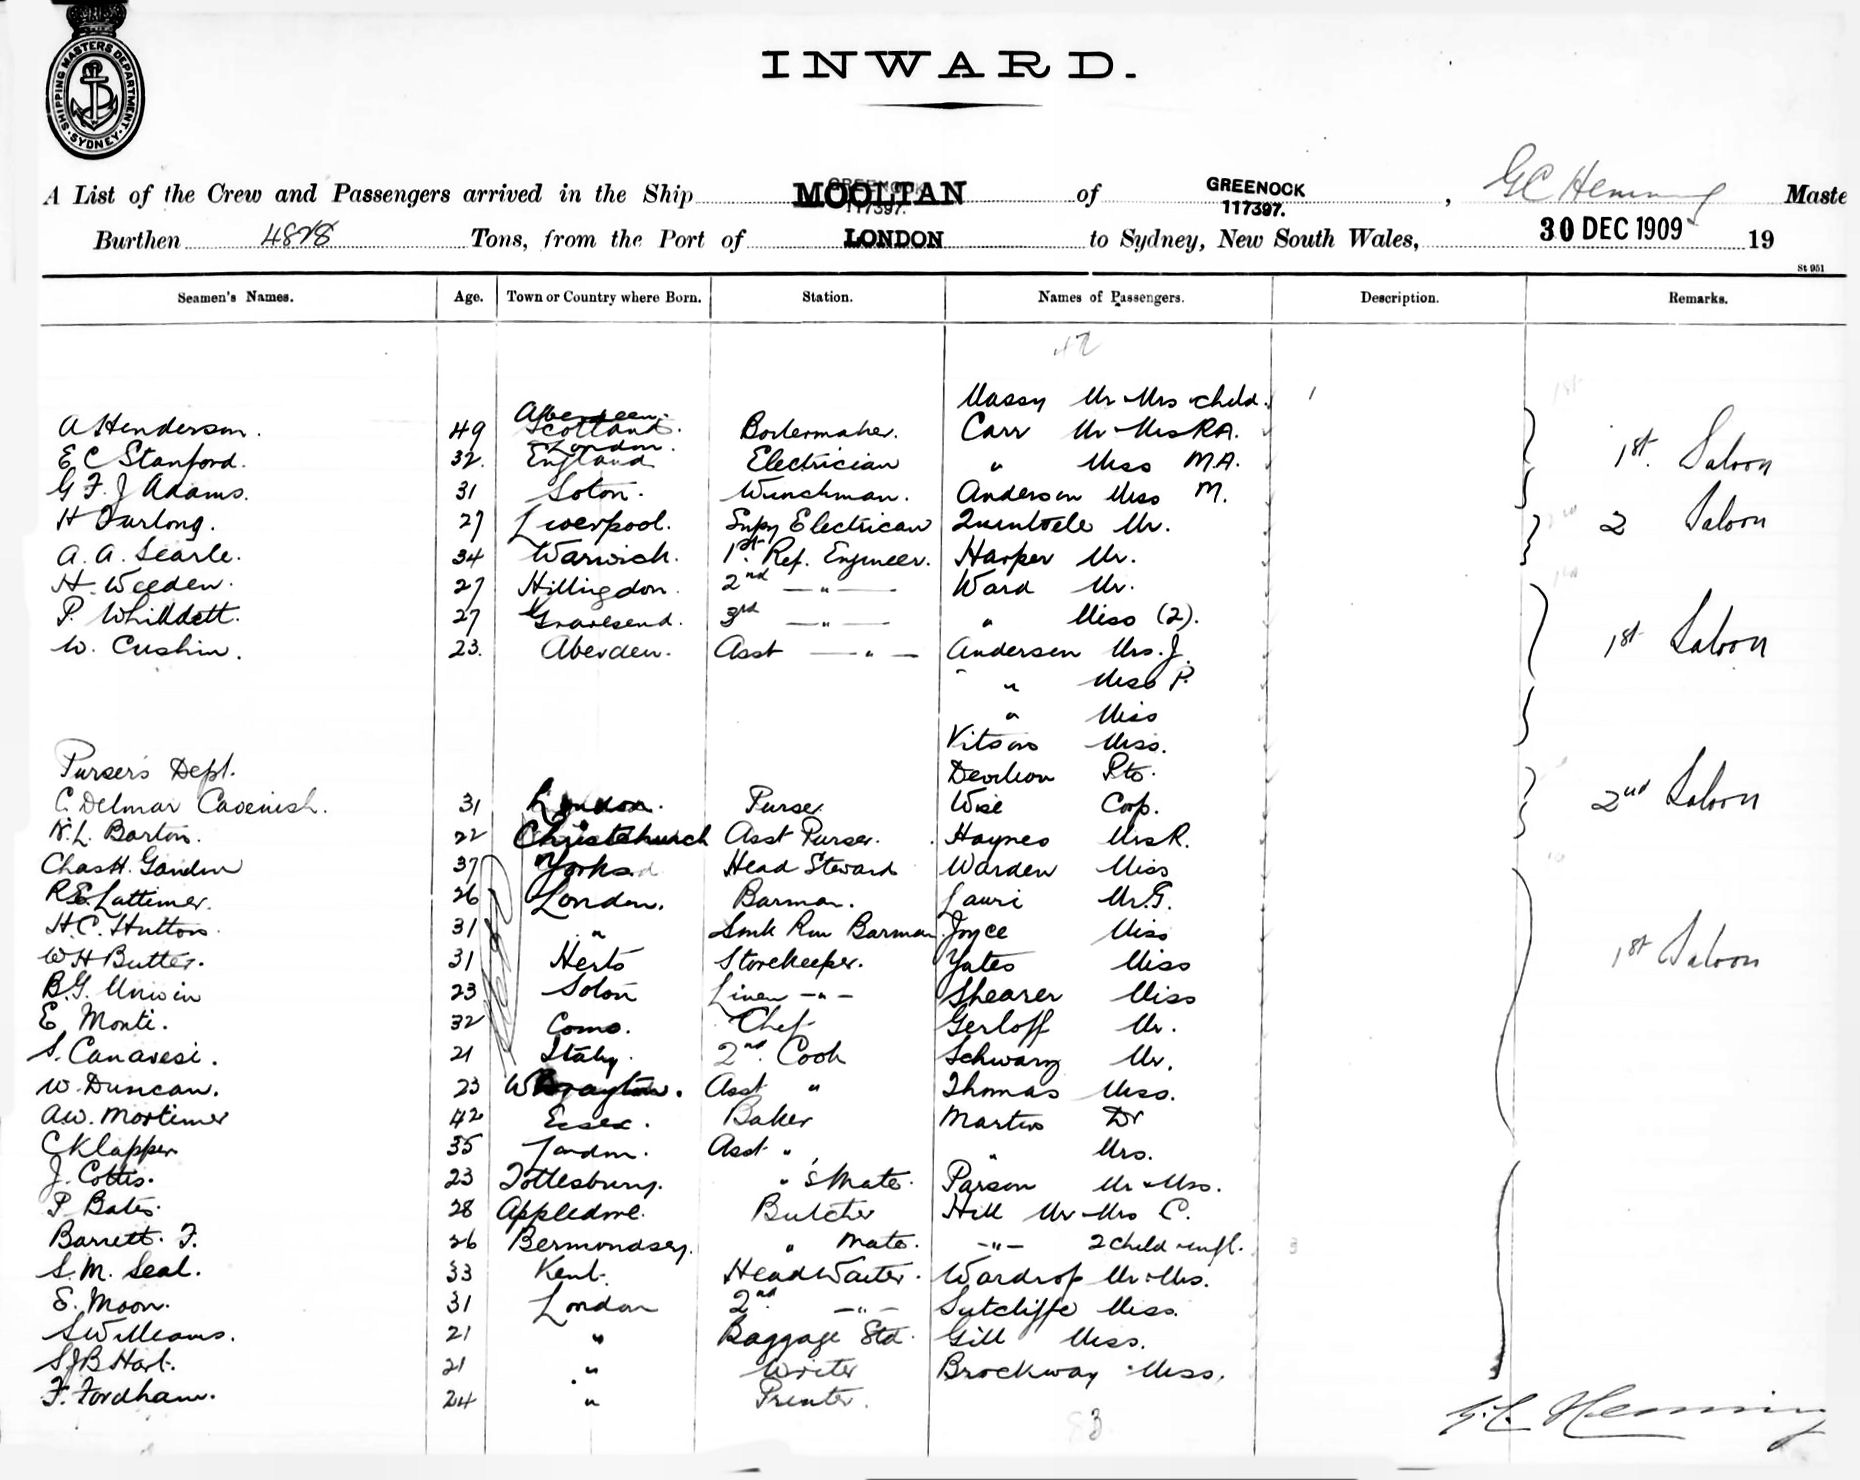 SHIPPING MASTERS DEPARTMENT. SYDNEY.
INWARD.
A List of the Crew and Passengers arrived in the Ship MOOLTAN of GREENOCK 117397. , G C Hemming Maste
Burthen 4828 Tons, from the Port of LONDON to Sydney, New South Wales, 30 DEC 1909 19
St 951
Seamen's Names. Age. Town or Country where Born. Station. Names of Passengers. Description. Remarks.
Massy Mr Mrs child. 1
A Henderson. 49 Aberdeen. Scotland. Boilermaker. Carr Mr Mrs R A.
E C Stanford. 32. London. England Electrician " Miss M A. 1st. Saloon
G F J Adams. 31 Soton. Winchman. Anderson Miss M.
H Furlong. 27 Liverpool. Supy Electrican Mr. 2 Saloon
A. A. Searle. 34 Warwick. 1st. Ref. Engineer. Harper Mr.
H. Weeden. 27 Hillingdon. 2nd — " — Ward Mr.
P. Whilldett. 27 Gravesend. 3rd — " — " Miss (2).
W. Cushin. 23. Aberdeen. Asst — " — Anderson Mrs. J. 1st Saloon
" Miss P.
" Miss
Miss.
Pursers Dept. Pte.
C. Delmar Cavenish. 31 London. Purser Wise Corp. 2nd Saloon
L. Barton. 22 Christchurch Asst Purser. Haynes Mrs R.
Chas H. 37 Yorks Head Steward Warden Miss
R.E. Lattimer. 26 London. Barman. Lauri Mr. G.
H. C. Hutton. 31 " Smk Rm Barman. Joyce Miss
W H Butter. 31 Herts Storekeeper. Yates Miss 1st Saloon
B. G. Unwin 23 Soton Linen - " - Shearer Miss
E Monti. 32 Como. Chef Gerloff Mr.
S. Canavesi. 21 Italy. 2nd. Cook Schwarz Mr.
W. Duncan. 23 Asst " Thomas Miss.
A.W. Mortimer 42 Essex. Baker Martin Dr
C Klapper. 35 London. Asst " " Mrs.
J. Cottis. 23 Tollesbury. " 's Mate. Parson Mr & Mrs.
P Bates. 28 Appledore. Butcher Hill Mr Mrs C.
Barrett. F. 26 Bermondsey. " Mate. - " - 2 child & inf. 3
S. M. Seal. 33 Kent. Head Waiter. Wardrop Mr & Mrs.
E. Moon. 31 London 2nd - " - Sutcliffe Miss.
S Williams. 21 " Baggage Std. Gill Miss.
S J B Hart. 21 " Writer Brockway Miss.
F. Fordham. 24 " Printer.
G. C. Hemming